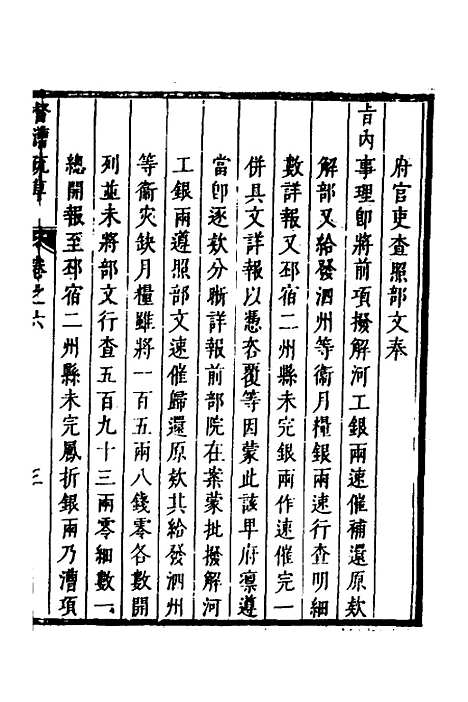 府官吏查照部文奉
旨內事理卽將前項撥解河工銀兩速催補還原欵
解部又給發泗州等衞月糧銀兩速行查明細
數詳報又邳宿二州縣未完銀兩作速催完一
併具文詳報以憑咨覆等因蒙此該卑府凛遵
當卽逐欵分晣詳報前部院在案蒙批撥解河
工銀兩遵照部文速催歸還原欵其給發泗州
等衞灾缺月糧雖將一百五兩八錢零各數開
列並未將部文行查五百九十三兩零細數一
總開報至邳宿二州縣未完鳳折銀兩乃漕項
督漕疏草
卷之六
三